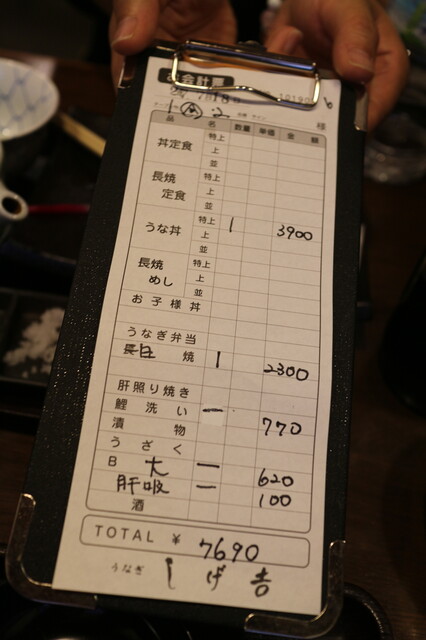 会計票
7月18日 10190
様
品 名 数量 単価 金額
丼定食 特上
上
並
長焼定食 特上
上
並
うな丼 特上 1 3900
上
並
長焼めし 特上
上
並
お子様丼
うなぎ弁当
長白焼 1 2300
肝照り焼き
鯉洗い 一 770
漬物
うざく
B 大 一 620
肝吸 一 100
酒
TOTAL ¥ 7690
うなぎ しげ吉